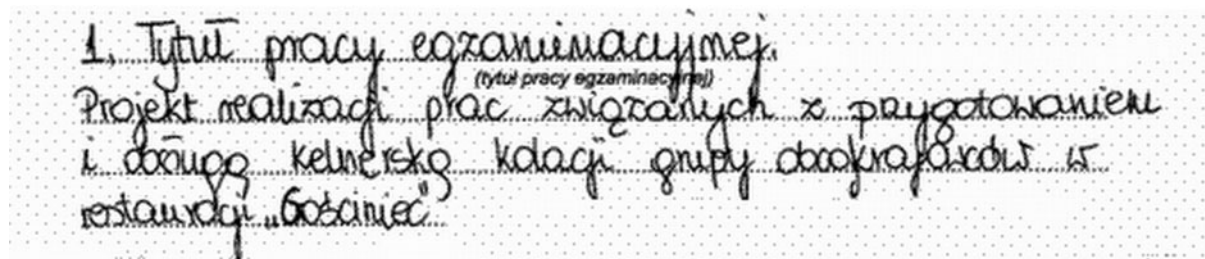 1. Tytuł pracy egzaminacyjnej.
(tytuł pracy egzaminacyjnej)
Projekt realizacji prac związanych z przygotowaniem
i obsługą kelnerską kolacji grupy obcokrajowców w
restauracji „Gościniec"